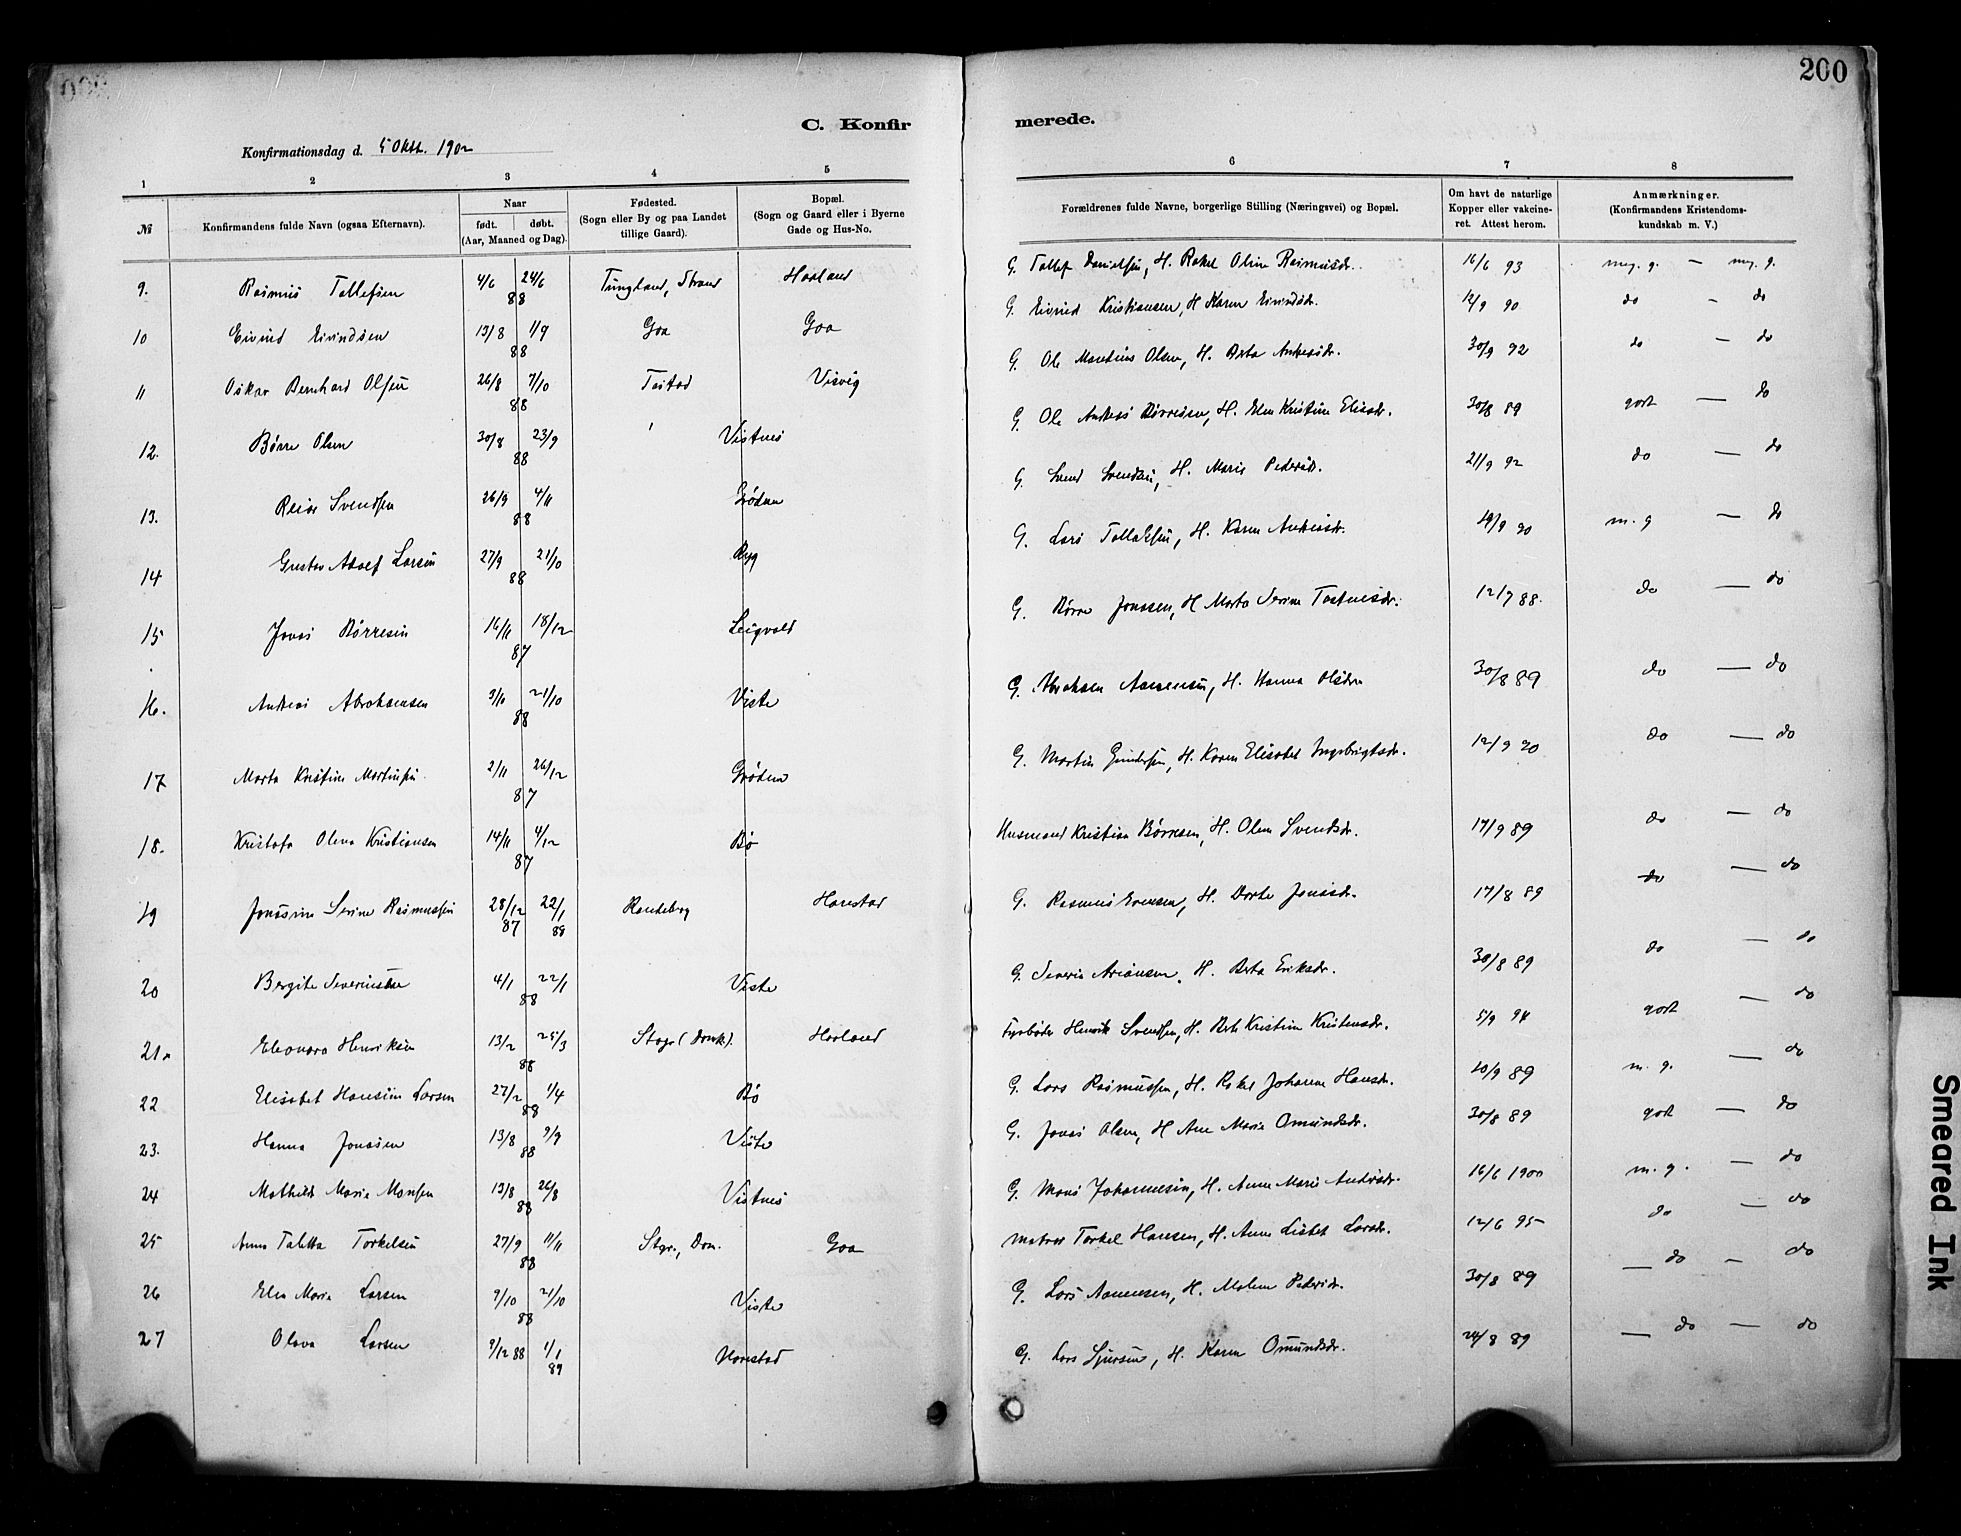 200
C. Konfirmerede.
Konfirmationsdag d. 5 Oktb. 1902
1 2 3 4 5 6 7 8
№
Konfirmandens fulde Navn (ogsaa Efternavn).
Naar
født. døbt.
(Aar, Maaned og Dag).
Fødested.
(Sogn eller By og paa Landet
tillige Gaard).
Bopæl.
(Sogn og Gaard eller i Byerne
Gade og Hus-No.
Forældrenes fulde Navne, borgerlige Stilling (Næringsvei) og Bopæl.
Om havt de naturlige
Kopper eller vakcine-
ret. Attest herom.
Anmærkninger.
(Konfirmandens Kristendoms-
kundskab m. V.)
9. Rasmus Tollefsen 4/6 24/6 88 Tungland, Strand Haaland G. Tollef Danielsen, H. Rakel Oline Rasmusdr. 16/6 93 meg. g. — meg. g.
10 Eivind Eivindsen 13/8 1/9 88 Goa Goa G. Eivind Kristiansen, H. Karen Eivindsdr. 12/9 90 do — do
11 Oskar Bernhard Olsen 26/8 7/10 88 Tastad Visvig G. Ole Martinius Olsen, H. Berta Andreasdr. 30/9 92 do — do
12. Børre Olsen 30/8 23/9 88 Vistnes G. Ole Andreas Børresen, H. Elen Kristine Eliasdr. 30/8 89 godt — do
13. Reier Svendsen 26/9 4/11 88 Grødem G. Svend Svendsen, H. Marie Pedersdr. 21/9 92 do — do
14 Gustav Adolf Larsen 27/9 21/10 88 Ryg G. Lars Tollaksen, H. Karen Andreasdr. 19/9 90 m. g — do
15 Jonas Børresen 16/11 18/12 87 Leigvold G. Børre Jonassen, H. Marta Serine Tostensdr. 12/9 88. do — do
16. Andreas Abrahamsen 3/10 21/10 88 Viste G. Abraham Aanensen, H. Hanna Olsdr. 30/8 89 do — do
17 Marta Kristine Martinsen 2/11 26/12 87 Grødem G. Martin Gundersen, H. Karen Elisabet Ingebrigtsdr. 12/9 90 do — do
18. Kristofa Olena Kristiansen 14/11 4/12 87 Bø Husmand Kristian Børresen, H. Olena Svendsdr. 17/9 89 do — do
19 Jonasine Serine Rasmussen 28/12 87 22/1 88 Randeberg Harestad G. Rasmus Evensen, H. Dorte Jonasdr. 17/8 89 do — do
20 Bergite Severinsen 4/1 22/1 88 Viste G. Severin Ariansen, H. Berta Eriksdr. 30/8 89 do — do
21. Eleonora Henriksen 13/2 25/3 88 Stvgr (Domk). Haaland Fyrbøder Henrik Svendsen, H. Berte Kristine Kristensdr. 5/9 94 godt — do
22 Elisabet Hansine Larsen 27/2 1/4 88 Bø G. Lars Rasmussen, H. Rakel Johanne Hansdr. 20/9 89 m. g. — do
23. Hanna Jonassen 13/8 9/9 88 Viste G. Jonas Olsen, H. Ane Maria Omundsdr. 30/8 89 godt — do
24 Mathilde Marie Monsen 13/8 26/8 88 Vistnes G. Mons Johannesen, H. Anne Marie Andersdr. 16/6 1900 m. g. — do
25 Anna Taletta Torkelsen 27/9 11/11 88 Stgr., Dom. Goa Matros Torkel Hansen, H. Anne Lisbet Larsdr. 12/6 95 do — do
26 Elen Maria Larsen 9/10 21/10 88 Viste G. Lars Aanensen, H. Malene Pedersdr. 30/8 89 — do — do
27 Olava Larsen 9/12 88 1/1 89 Harestad G. Lars Sjursen, H. Karen Omundsdr. 24/8 89 — do — do
Smeared Ink